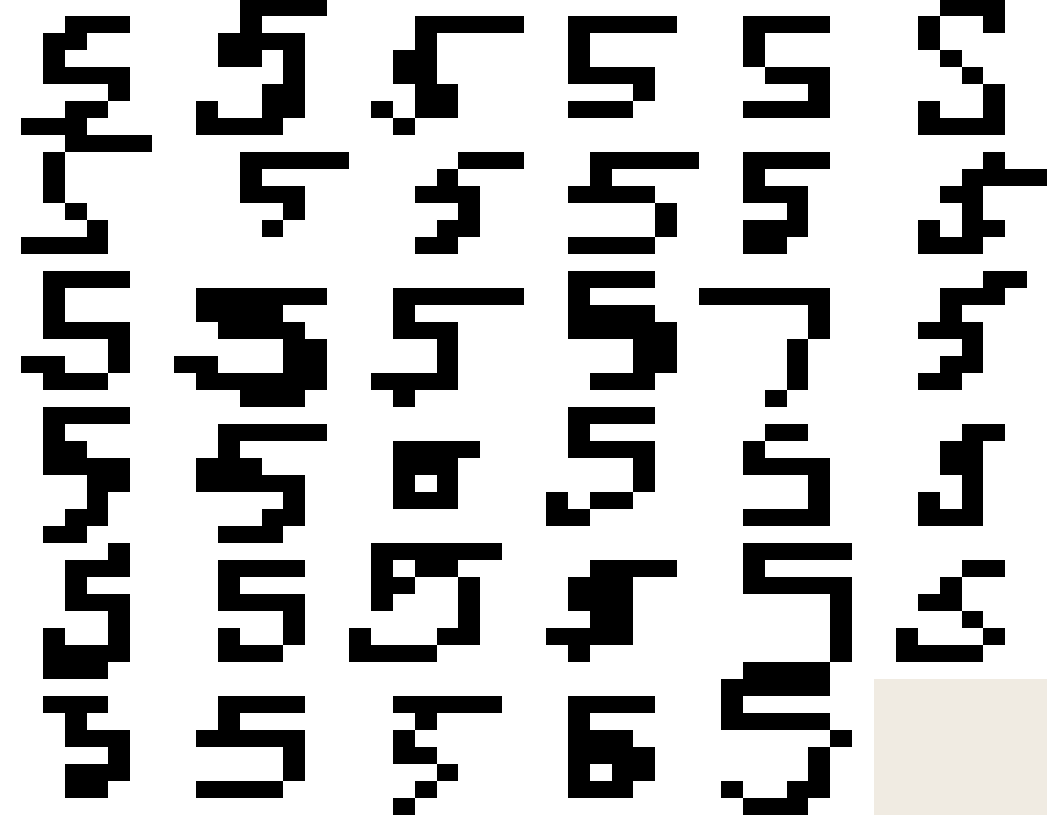 5 5 5 5 5 5
5 5 5 5 5 5
5 5 5 5 5
5 5 5 5 5
5 5 5 5 5 5
5 5 5 5